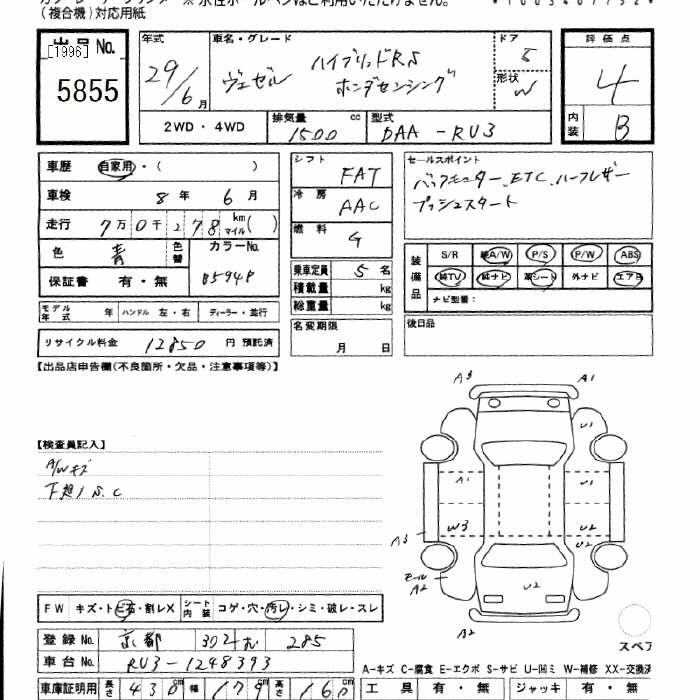 (複合機)対応用紙
出品No.
[1996]
5855
年式
29/6月
車名・グレード
ヴェゼル ハイブリッドRS
ホンダセンシング
ドア 5
形状 W
評価点
4
内装 B
2WD・4WD
排気量 1500 cc
型式 DAA-RU3
車歴 自家用・( )
車検 8年 6月
走行 7万0千278 km マイル( )
色 青 色替 カラーNo.
B594P
保証書 有・無
シフト FAT
冷房 AAC
燃料 G
乗車定員 5名
積載量 kg
総重量 kg
名変期限
月 日
セールスポイント
バックモニター、ETC、ハーフレザー
プッシュスタート
装備品
S/R 純A/W P/S P/W ABS
純TV 純ナビ 革シート 外ナビ エアB
ナビ型番:
後日品
モデル年式 年 ハンドル 左・右 ディーラー・並行
リサイクル料金 12850 円 預託済
【出品店申告欄(不良箇所・欠品・注意事項等)】
【検査員記入】
A/Wキズ
A3
A1
U1
A1
U1
W3
U2
A3
U2
モール
A2
U2
B2
FW キズ・トビ石・割レX シート内装 コゲ・穴・汚レ・シミ・破レ・スレ
登録No. 京都 302む 285
車台No. RU3-1248393
車庫証明用 長さ 430cm 幅 179cm 高さ 160cm
スペア
A-キズ C-腐食 E-エクボ S-サビ U-凹ミ W-補修 XX-交換済
工具 有・無 ジャッキ 有・無